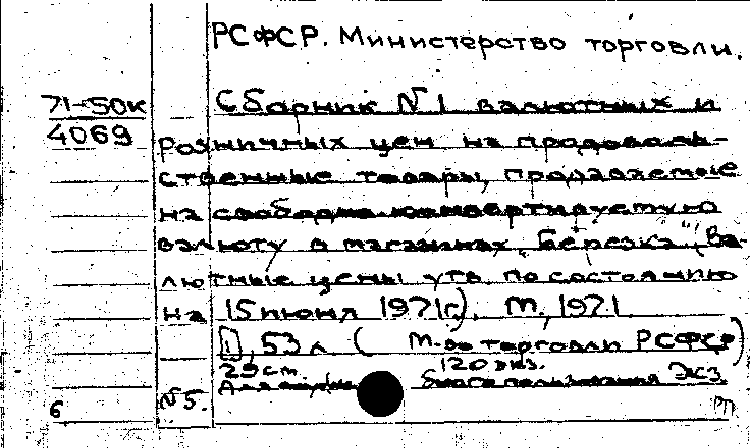 РСФСР. Министерство торговли.
71-50к
4069
Сборник №1 валютных и
розничных цен на продоволь-
ственные товары, продаваемые
на свободно конвертируемую
валюту в магазинах "Березка". (Ва-
лютные цены утв. по состоянию
на 15 июня 1971г.). М., 1971.
[1], 53 л. (М-во торговли РСФСР)
29 см. 120 экз.
Для служебного пользования Экз.
№5.
6